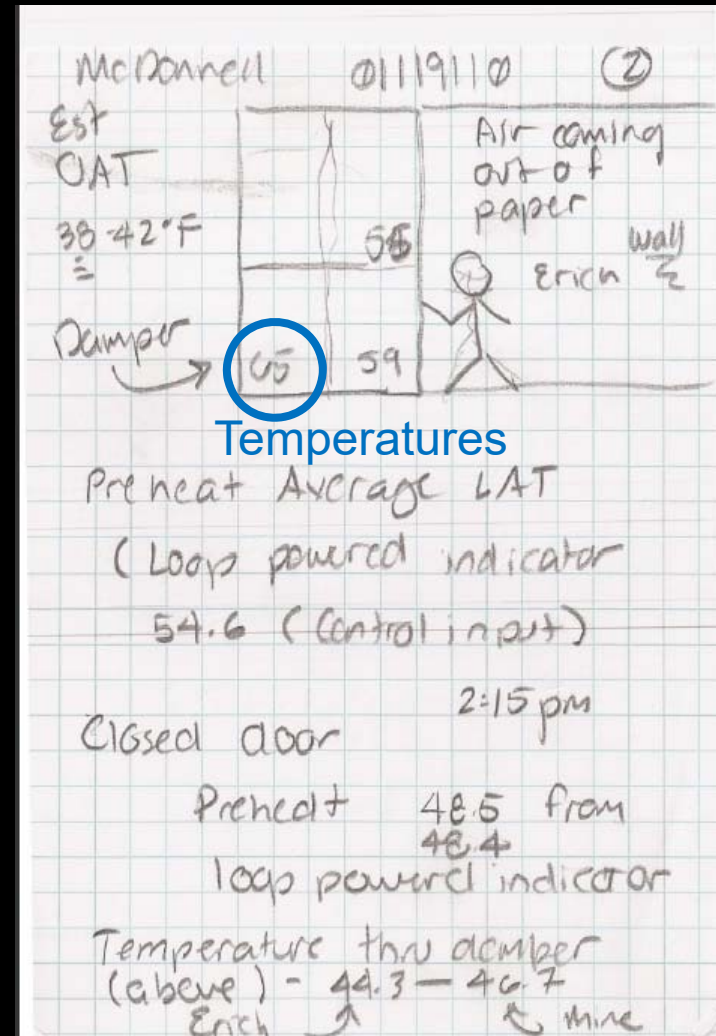 McDonnell 01119110 ②
Est
OAT
38-42°F
Air coming
out of
paper
wall
Erich
55
Damper
65 59
Temperatures
Preheat Average LAT
(Loop powered indicator
54.6 (Control input)
2:15 pm
Closed door
Preheat 48.5 from
48.4
loop powered indicator
Temperature thru damper
(above) - 44.3 — 46.7
Erich Mine